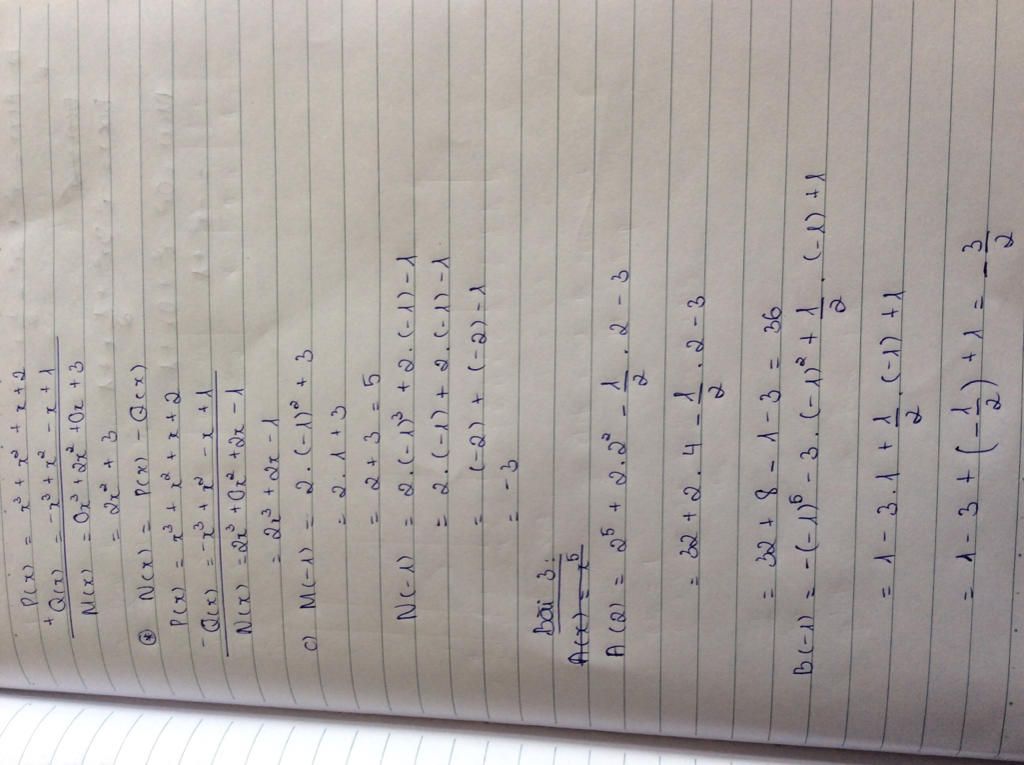 P(x) = x³ + x² + x + 2
+ Q(x) = -x³ + x² - x + 1
M(x) = 0x³ + 2x² + 0x + 3
= 2x² + 3
* N(x) = P(x) - Q(x)
P(x) = x³ + x² + x + 2
- Q(x) = -x³ + x² - x + 1
N(x) = 2x³ + 0x² + 2x - 1
= 2x³ + 2x - 1
c) M(-1) = 2 . (-1)² + 3
= 2 . 1 + 3
= 2 + 3 = 5
N(-1) = 2 . (-1)³ + 2 . (-1) - 1
= 2 . (-1) + 2 . (-1) - 1
= (-2) + (-2) - 1
= -3
Bài 3:
A(x) = x⁵
A(2) = 2⁵ + 2.2² - 1/2 . 2 - 3
= 32 + 2 . 4 - 1/2 . 2 - 3
= 32 + 8 - 1 - 3 = 36
B(-1) = -(-1)⁵ - 3 . (-1)² + 1/2 . (-1) + 1
= 1 - 3 . 1 + 1/2 . (-1) + 1
= 1 - 3 + (-1/2) + 1 = -3/2